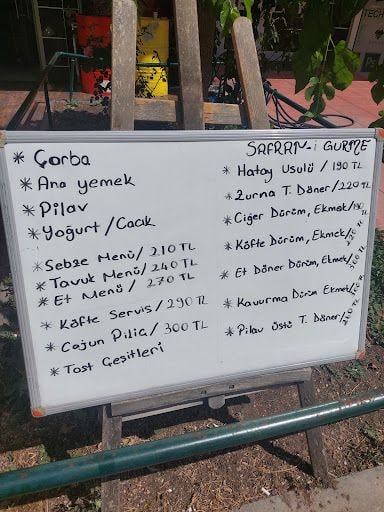 * Çorba
* Ana yemek
* Pilav
* Yoğurt/Cacık
* Sebze Menü/ 210 TL
* Tavuk Menü/ 240 TL
* Et Menü / 270 TL
* Köfte Servis/ 290 TL
* Coğun Piliç/ 300 TL
* Tost Çeşitleri
SAFRAN-i GURME
* Hatay Usulü / 190 TL
* Zurna T. Döner/220 TL
* Ciğer Dürüm, Ekmek/
* Köfte Dürüm, Ekmek/
* Et Döner Dürüm, Ekmek/
* Kavurma Dürüm Ekmek/
* Pilav Üstü T. Döner/